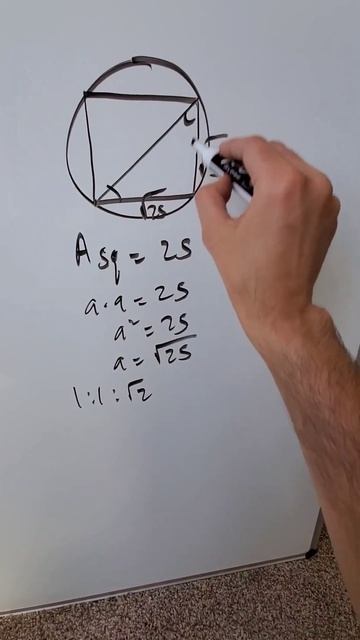 √25
A sq = 25
a · a = 25
a² = 25
a = √25
1:1:√2